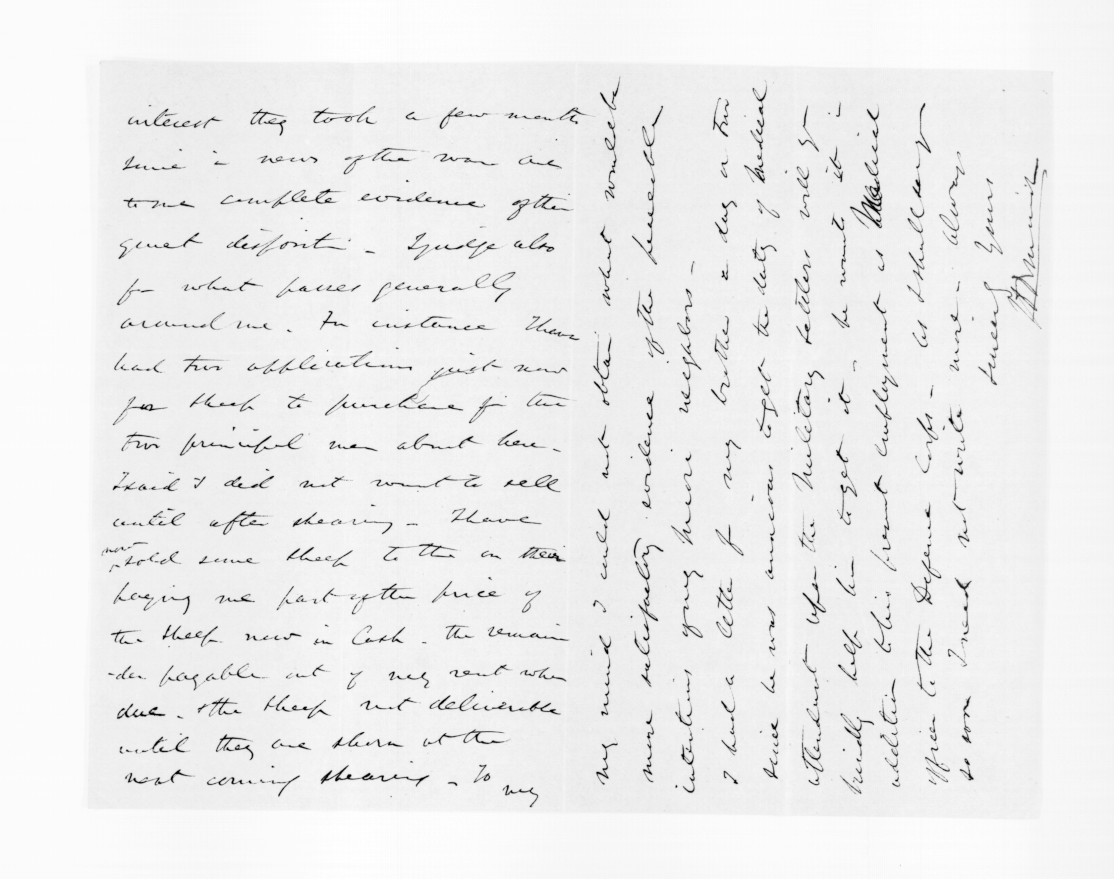 interest they took a few months
since in news of the war are
to me complete evidence of their
quiet disposition - I judge also
from what passes generally
around me. For instance I have
had two applications just now
for sheep to purchase from the
two principal men about here -
I said I did not want to sell
until after shearing - I have
now sold some sheep to them on their
paying me part of the price of
the sheep now in Cash - the remain
-der payable out of my rent when
due - & the sheep not deliverable
until they are shorn at the
next coming shearing - To my
my mind I could not obtain what would be
more satisfactory evidence of the peaceable
intentions of my Maori neighbors -
I had a letter from my brother a day or two
since he was anxious to get the duty of Medical
attendant upon the Military settlers will you
kindly help him to get it - he wants it in
addition to his present employment as Medical
officer to the Defence Corps - as I shall see you
so soon I need not write more - always
sincerely Yours